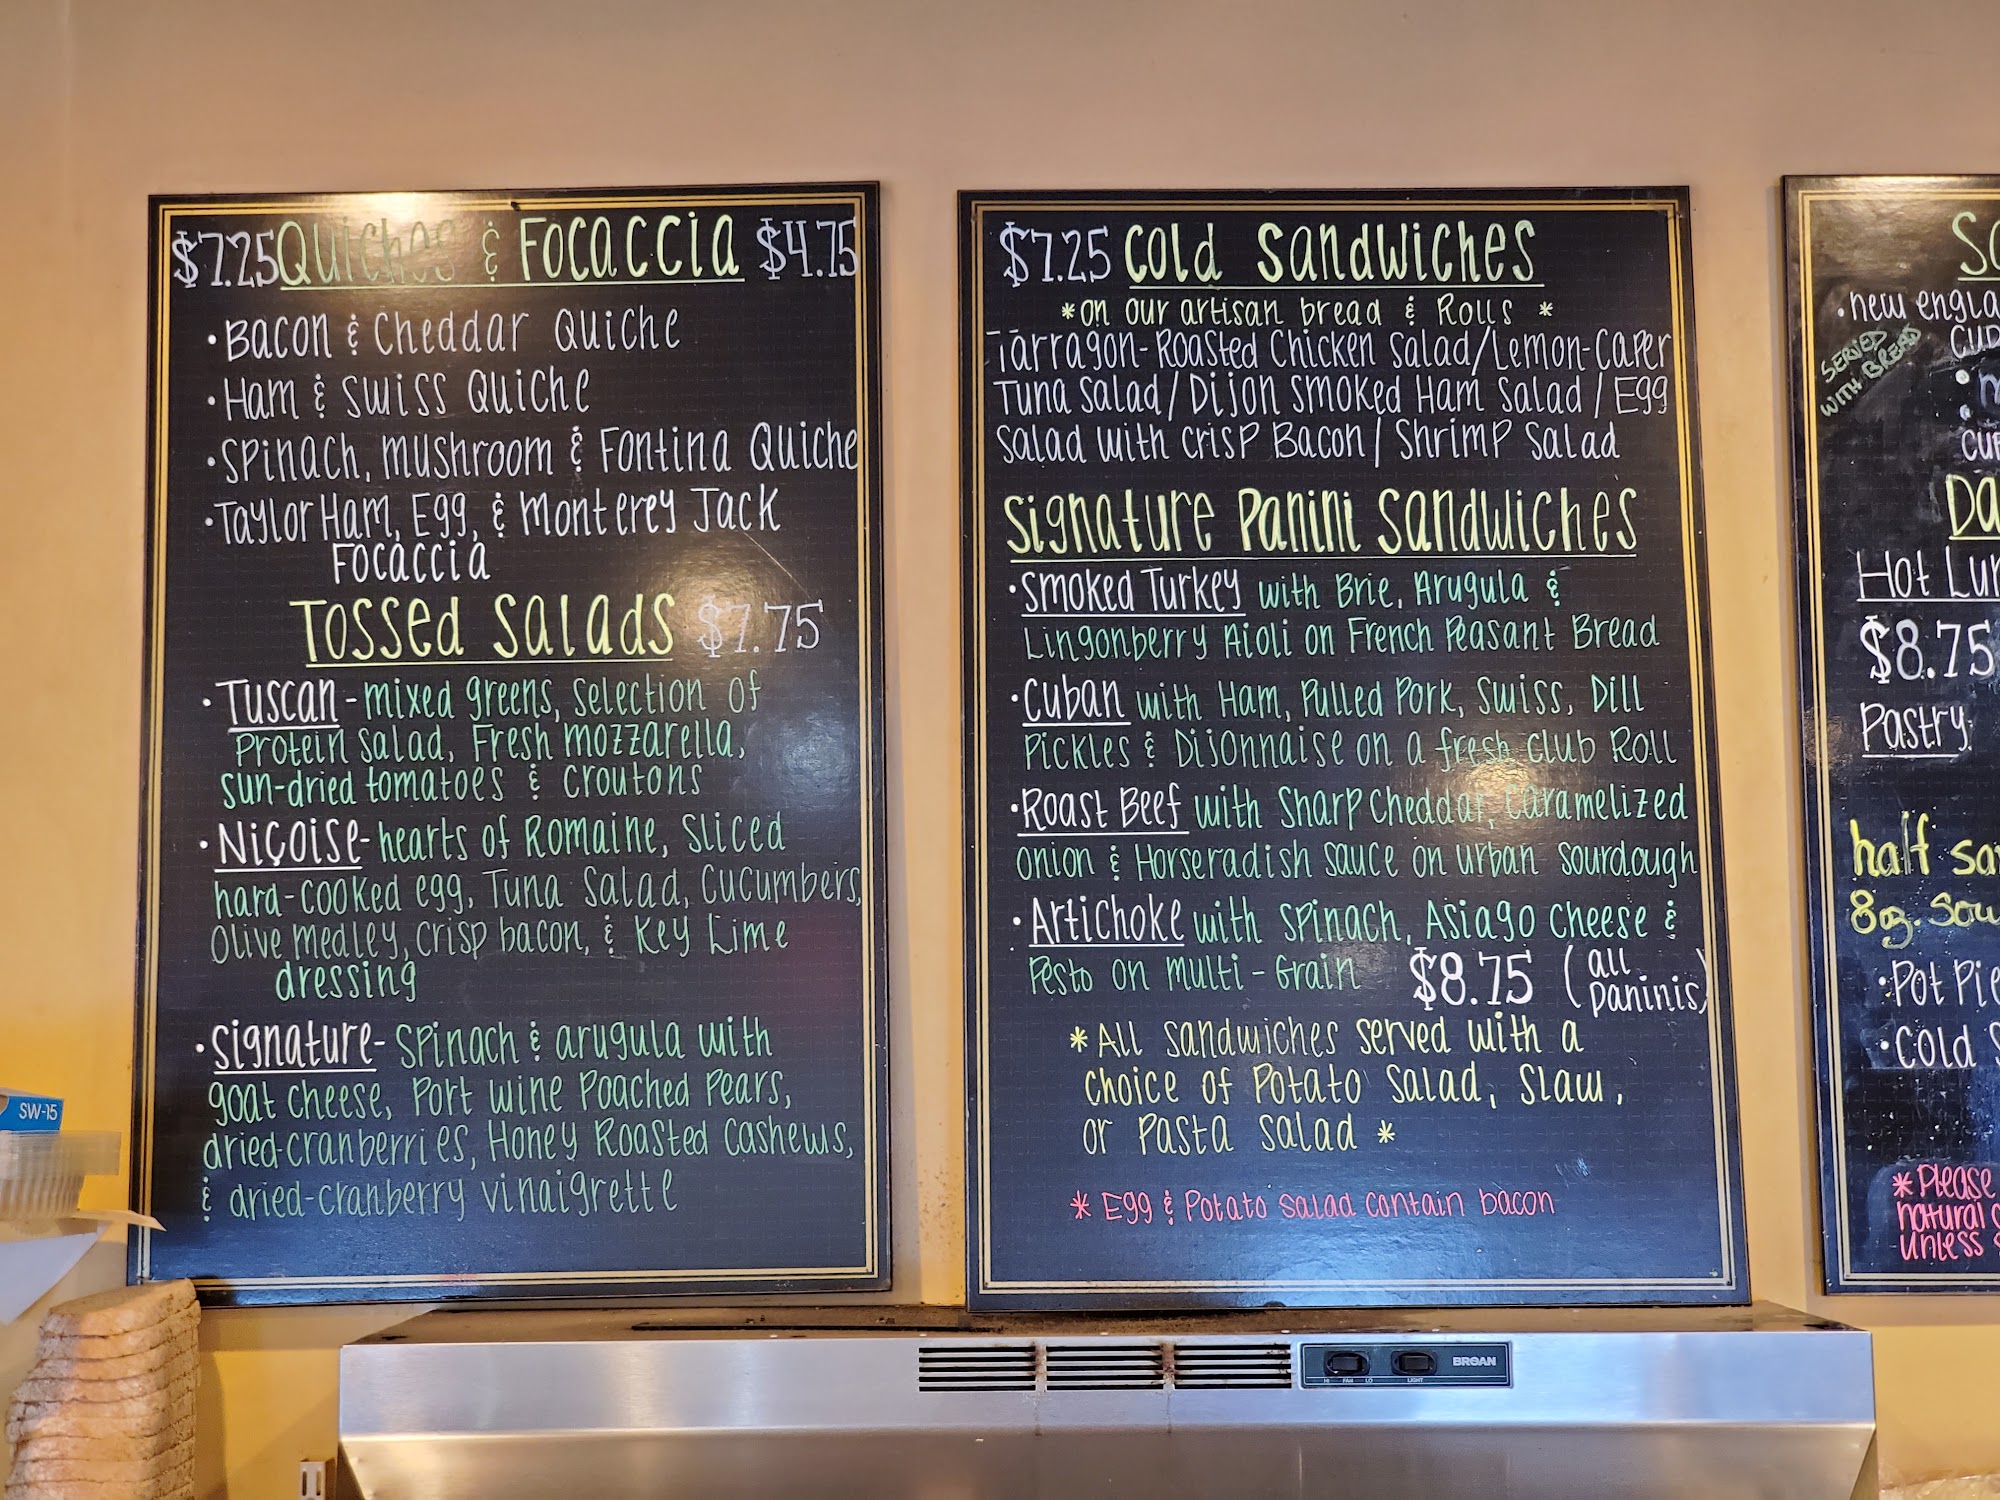 $7.25 Quiches & Focaccia $4.75
• Bacon & Cheddar Quiche
• Ham & Swiss Quiche
• Spinach, Mushroom & Fontina Quiche
• Taylor Ham, Egg, & Monterey Jack
Focaccia
Tossed Salads $7.75
• Tuscan - mixed greens, selection of
Protein salad, Fresh mozzarella,
sun-dried tomatoes & croutons
• Niçoise - hearts of Romaine, sliced
hard-cooked egg, Tuna Salad, Cucumbers,
Olive medley, crisp bacon, & Key Lime
dressing
• Signature - Spinach & arugula with
goat cheese, Port wine Poached Pears,
dried-cranberries, Honey Roasted Cashews,
& dried-cranberry vinaigrette
$7.25 Cold Sandwiches
*on our artisan bread & Rolls *
Tarragon-Roasted Chicken Salad/Lemon-Caper
Tuna Salad/Dijon Smoked Ham Salad/Egg
Salad with Crisp Bacon/Shrimp Salad
Signature Panini Sandwiches
• Smoked Turkey with Brie, Arugula &
Lingonberry Aioli on French Peasant Bread
• Cuban with Ham, Pulled Pork, Swiss, Dill
Pickles & Dijonnaise on a fresh club Roll
• Roast Beef with Sharp Cheddar, Caramelized
Onion & Horseradish Sauce on Urban Sourdough
• Artichoke with Spinach, Asiago Cheese &
Pesto on Multi-Grain $8.75 (all
paninis)
*All Sandwiches served with a
choice of Potato Salad, Slaw,
or Pasta Salad *
* Egg & Potato Salad contain bacon
• new engla
SERVED
WITH BREAD
CUP
Hot Lun
$8.75
Pastry:
half sa
8oz. Sou
• Pot Pie
• Cold S
*Please
natural
unless
SW-15
BROAN
HI FAN LO LIGHT